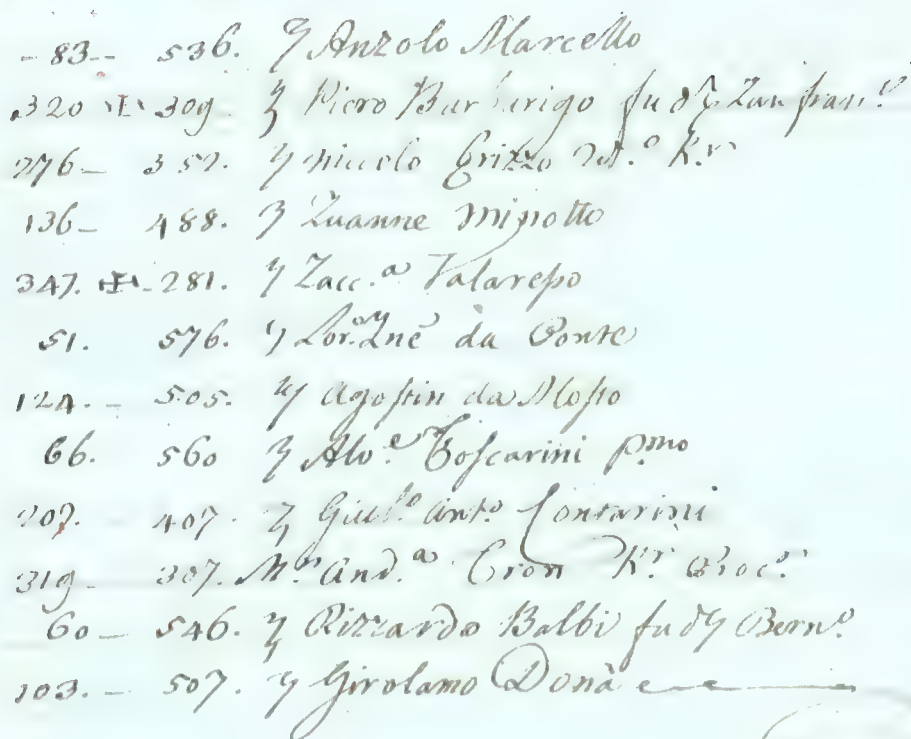 - 83 -- 536. ꝗ Anzolo Marcello
320 ✠ 309 ꝗ Piero Barbarigo fu de ꝗ Zan Fran.co
276 - 352. ꝗ Niccolo Erizzo K.r
136 - 488. ꝗ Zuanne Minotto
347. ✠ - 281. ꝗ Zacc.a Valaresso
51. 576. ꝗ Lor.o da Ponte
124. - 505. ꝗ Agostin da Mosto
66. 560 ꝗ Alv.e Foscarini p.mo
207. 407. ꝗ Giul.o Ant.o Contarini
319 - 307. M.r And.a Tron K.r Proc.r
60 - 546. ꝗ Rizzardo Balbi fu de ꝗ Bern.o
103. - 507. ꝗ Girolamo Donà